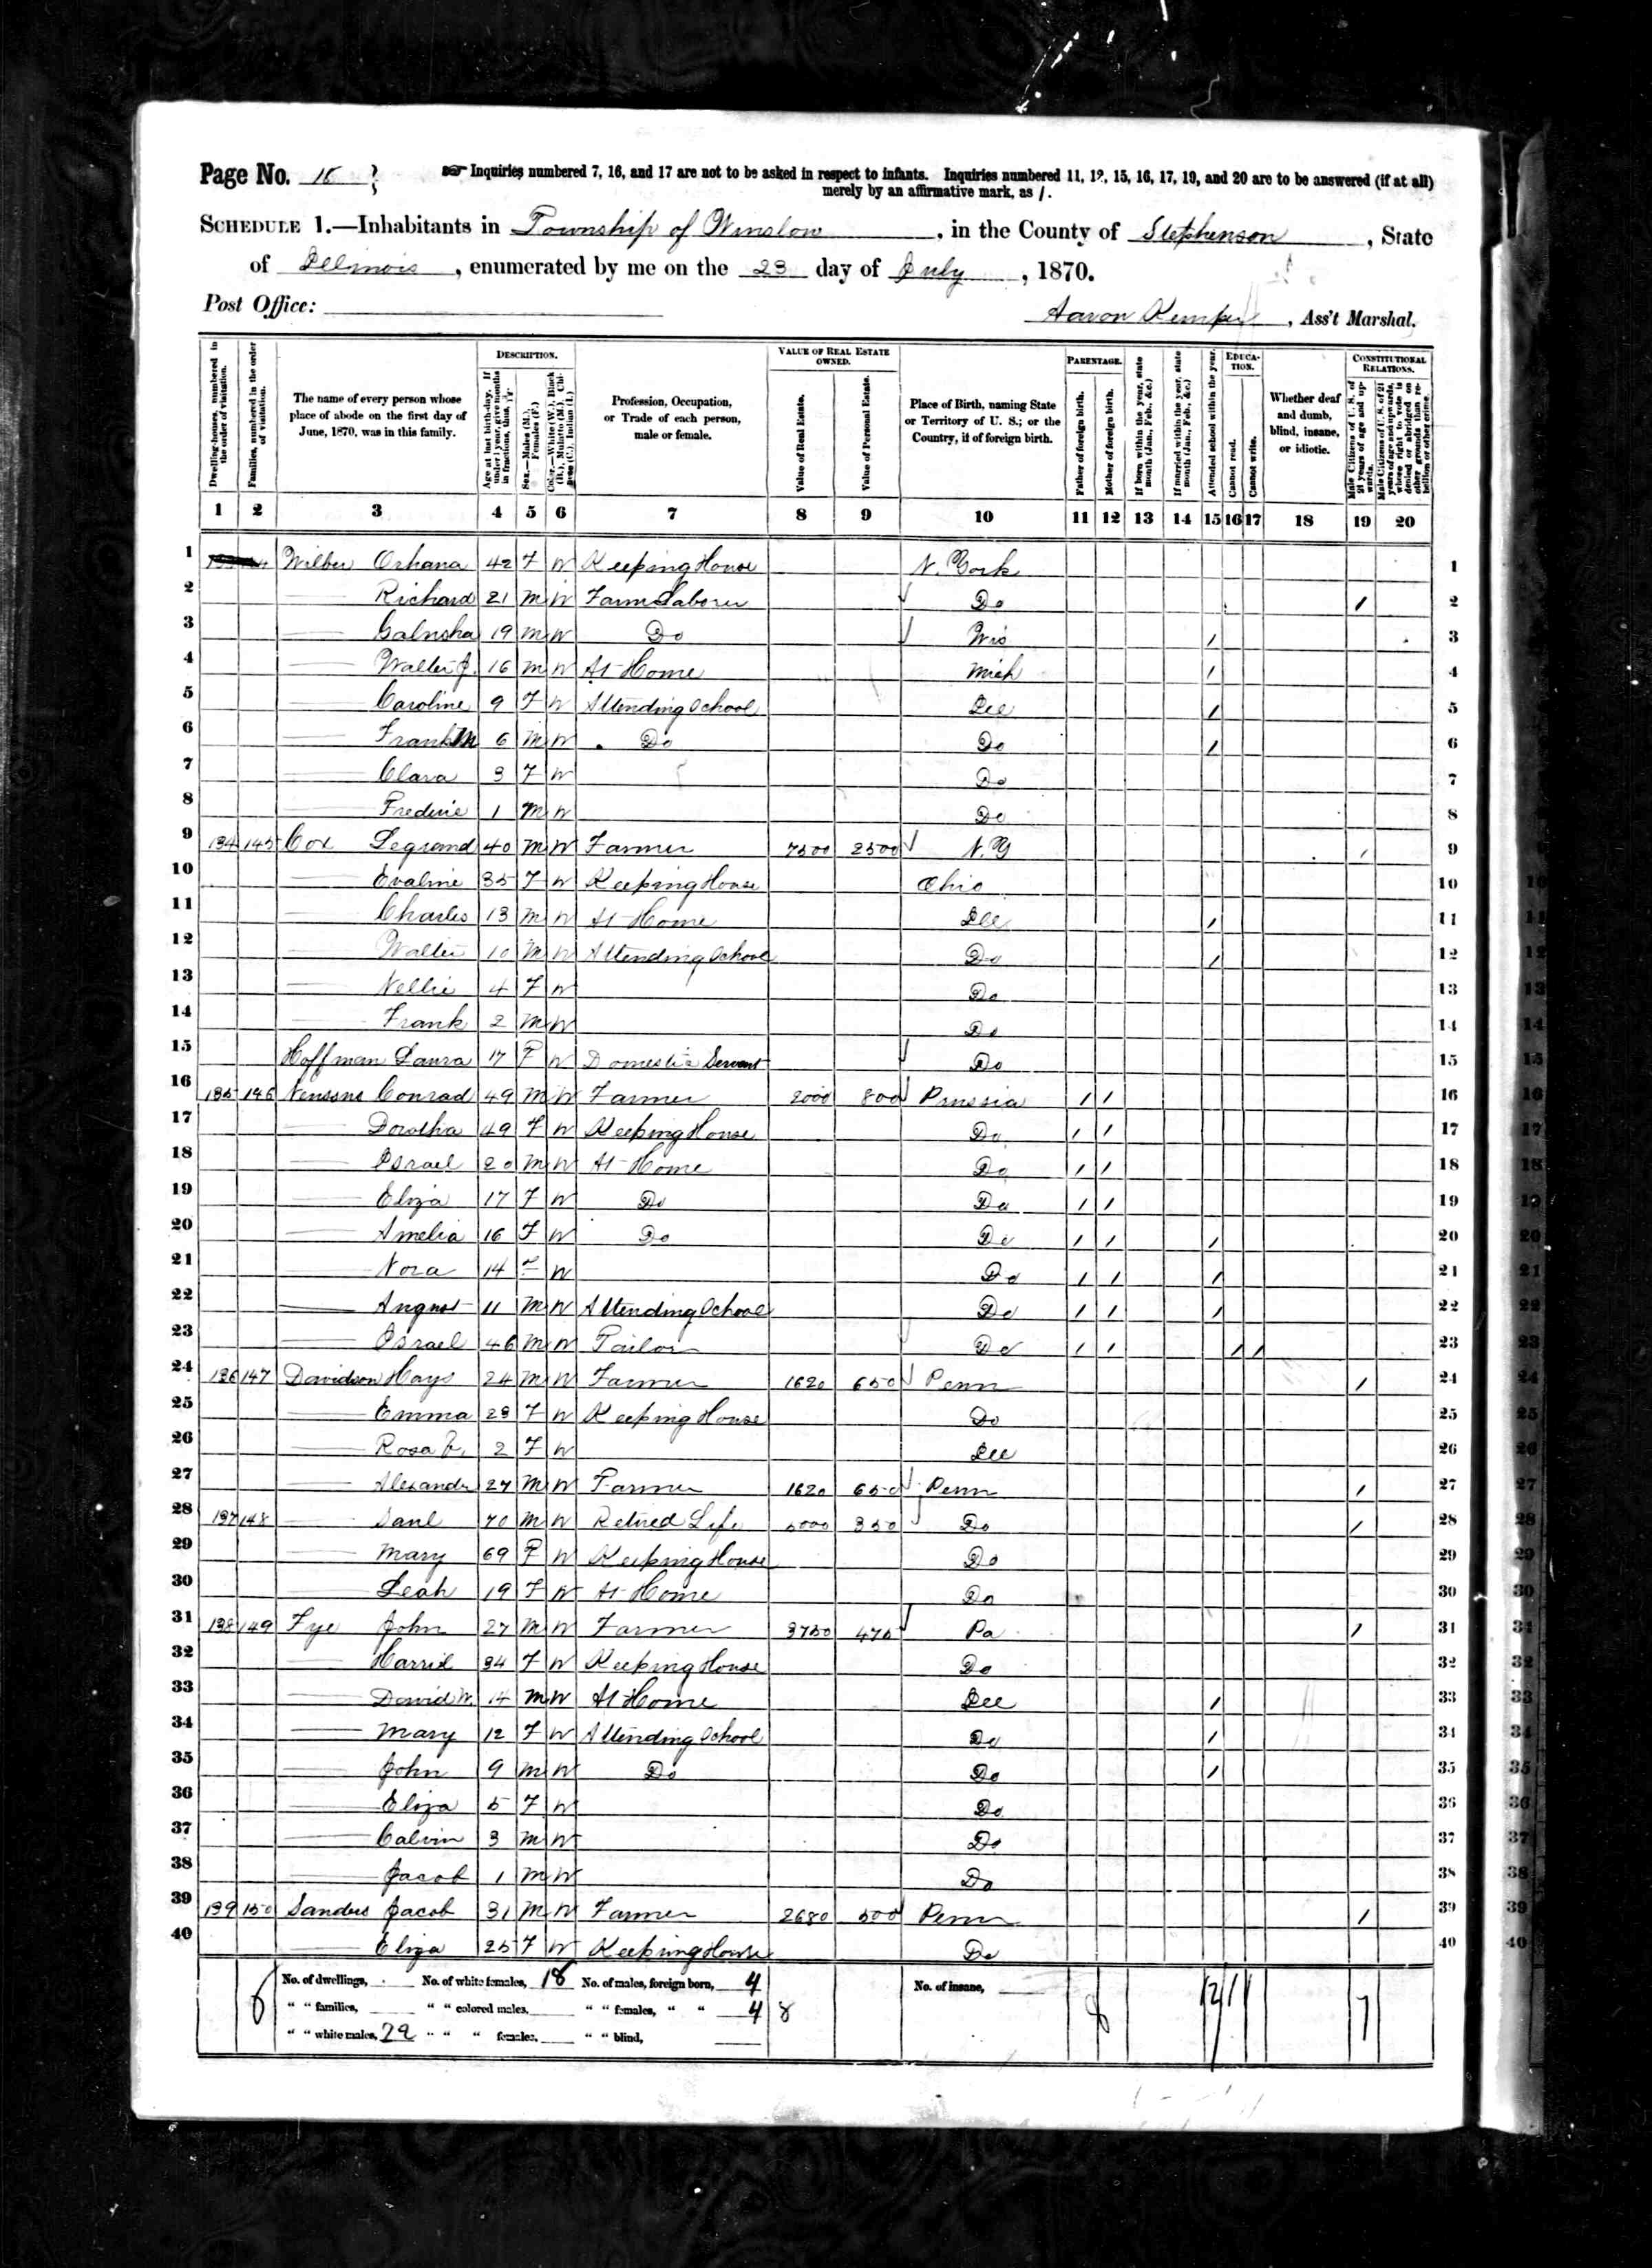 Page No. 15
☞ Inquiries numbered 7, 16, and 17 are not to be asked in respect to infants. Inquiries numbered 11, 12, 15, 16, 17, 19, and 20 are to be answered (if at all)
merely by an affirmative mark, as /.
SCHEDULE 1.—Inhabitants in Township of Winslow, in the County of Stephenson, State
of Illinois, enumerated by me on the 23 day of July, 1870.
Post Office:
Aaron Kemper, Ass't Marshal.
Dwelling-houses, numbered in the order of visitation.
Families, numbered in the order of visitation.
The name of every person whose place of abode on the first day of June, 1870, was in this family.
DESCRIPTION.
Age at last birth-day. If under 1 year, give months in fractions, thus, 3/12
Sex.—Males (M.), Females (F.)
Color.—White (W.), Black (B.), Mulatto (M.), Chinese (C.), Indian (I.)
Profession, Occupation, or Trade of each person, male or female.
VALUE OF REAL ESTATE OWNED.
Value of Real Estate.
Value of Personal Estate.
Place of Birth, naming State or Territory of U. S.; or the Country, if of foreign birth.
PARENTAGE.
Father of foreign birth.
Mother of foreign birth.
If born within the year, state month (Jan., Feb., &c.)
If married within the year, state month (Jan., Feb., &c.)
Attended school within the year.
EDUCATION.
Cannot read.
Cannot write.
Whether deaf and dumb, blind, insane, or idiotic.
CONSTITUTIONAL RELATIONS.
Male Citizens of U. S. of 21 years of age and upwards.
Male Citizens of U. S. of 21 years of age and upwards, whose right to vote is denied or abridged on other grounds than rebellion or other crime.
1 2 3 4 5 6 7 8 9 10 11 12 13 14 15 16 17 18 19 20
1 Wilber Orhana 42 F W Keeping House N. York 1
2 Richard 21 M W Farm Laborer Do / 2
3 Galusha 19 M W Do Wis / 3
4 Walter J. 16 M W At Home Mich / 4
5 Caroline 9 F W Attending School Ill / 5
6 Frank M 6 M W Do Do / 6
7 Clara 3 F W Do 7
8 Frederic 1 M W Do 8
9 134 145 Cox Legrand 40 M W Farmer 7500 2500 N. Y / 9
10 Evaline 35 F W Keeping House Ohio 10
11 Charles 13 M W At Home Ill / 11
12 Walter 10 M W Attending School Do / 12
13 Nellie 4 F W Do 13
14 Frank 2 M W Do 14
15 Hoffman Laura 17 F W Domestic Servant Do 15
16 135 146 Conrad 49 M W Farmer 2000 800 Prussia / / 16
17 Dorotha 49 F W Keeping House Do / / 17
18 Israel 20 M W At Home Do / / 18
19 Eliza 17 F W Do Do / / 19
20 Amelia 16 F W Do Do / / / 20
21 Nora 14 F W Do / / / 21
22 August 11 M W Attending School Do / / / 22
23 Israel 46 M W Tailor Do / / / / 23
24 136 147 Davidson Hays 24 M W Farmer 1620 650 Penn / 24
25 Emma 23 F W Keeping House Do 25
26 Rosa 2 F W Ill 26
27 Alexander 27 M W Farmer 1620 650 Penn / 27
28 137 148 Saul 70 M W Retired Life 5000 350 Do / 28
29 Mary 69 F W Keeping House Do 29
30 Leah 19 F W At Home Do 30
31 138 149 Fye John 27 M W Farmer 3750 475 Pa / 31
32 Harriet 34 F W Keeping House Do 32
33 David W. 14 M W At Home Ill / 33
34 Mary 12 F W Attending School Do / 34
35 John 9 M W Do Do / 35
36 Eliza 5 F W Do 36
37 Calvin 3 M W Do 37
38 Jacob 1 M W Do 38
39 139 150 Sanders Jacob 31 M W Farmer 2680 500 Penn / 39
40 Eliza 25 F W Keeping House Do 40
No. of dwellings, No. of white females, 18 No. of males, foreign born, 4 No. of insane,
" " families, " " colored males, " " females, " " 4 8
" " white males, 22 " " " females, " " blind,
6 8 12 1 1 7